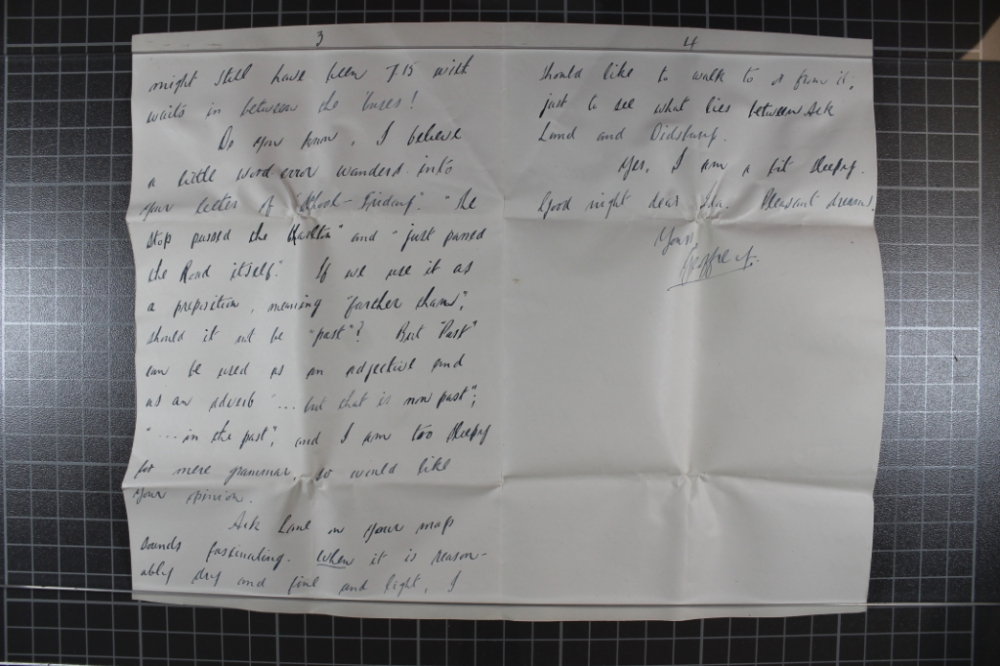 3
might still have been 7.15 with
waits in between the 'buses!
Do you know, I believe
a little word-error wanders into
your letter of "-Friday". "The
stop passed the" and "just passed
the Road itself." If we use it as
a preposition, meaning "farther than",
should it not be "past"? But "Past"
can be used as an adjective and
as an adverb "... but that is now past";
"... in the past", and I am too sleepy
for mere grammar, so would like
your opinion.
Ark Lane on your map
sounds fascinating. When it is reason-
ably dry and fine and light, I
4
should like to walk to & from it,
just to see what lies between Ark
Land and Didsbury.
Yes, I am a bit sleepy.
Good night dear. Pleasant dreams.
Yours,
Geoffrey.